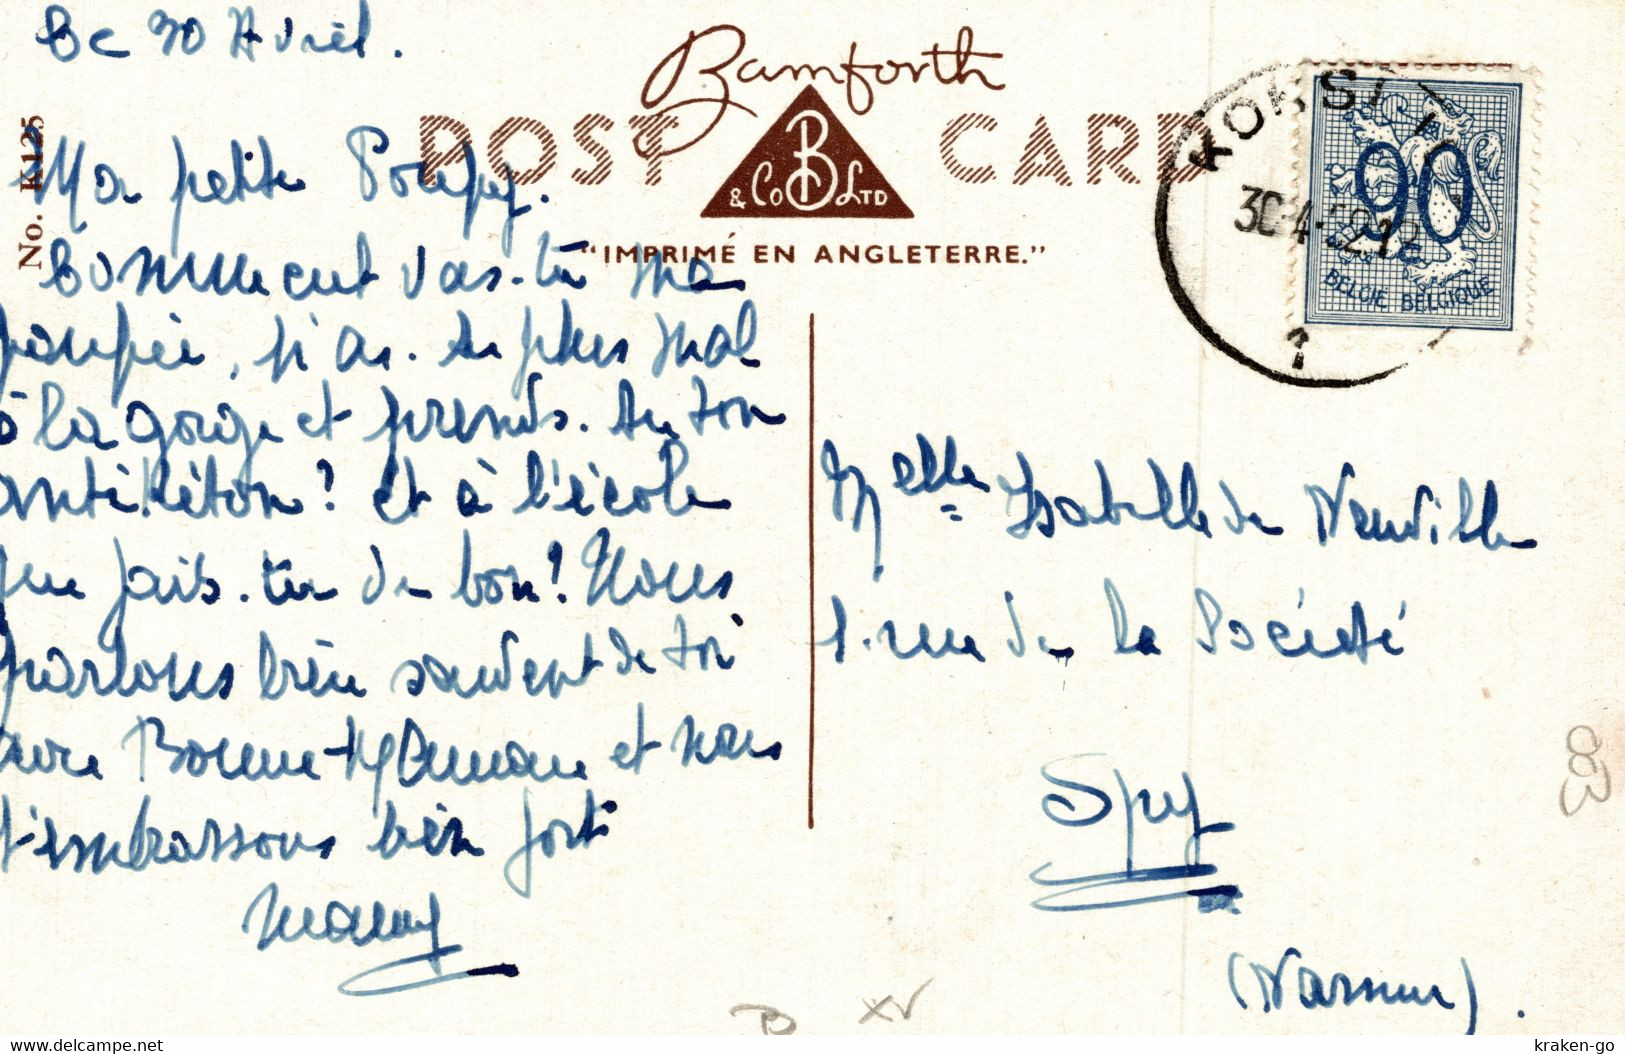 30 Avril.
No. K125
Bamforth
POST CARD
B
& Co LTD
"IMPRIMÉ EN ANGLETERRE."
KOKSIJ
30-4-
1
90
BELGIE BELGIQUE
Ma petite Poupey.
Comment vas-tu ma
poupée, n'as-tu plus mal
à la gorge et prends-tu ton
? et à l'école
que fais-tu de bon? Nous
parlons bien souvent de toi
avec Bonne-Maman et nous
t'embrassons bien fort
Mamy
Melle Isabelle de Neuville
1. rue de la Société
Spy
(Namur).
XV
delcampe.net
kraken-go